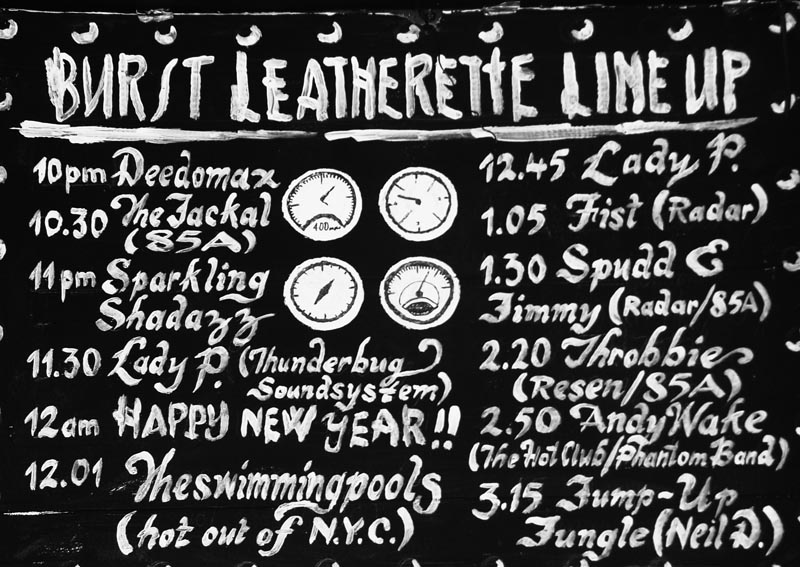 BURST LEATHERETTE LINE UP
10pm Deedomax
10.30 The Jackal
(85A)
11pm Sparkling
Shadazz
11.30 Lady P. (Thunderbug
Soundsystem)
12am HAPPY NEW YEAR!!
12.01 Theswimmingpools
(hot out of N.Y.C.)
400
12.45 Lady P.
1.05 Fist (Radar)
1.30 Spudd &
Jimmy (Radar/85A)
2.20 Throbbie
(Resen/85A)
2.50 Andy Wake
(The Hot Club/Phantom Band)
3.15 Jump-Up
Jungle (Neil D.)